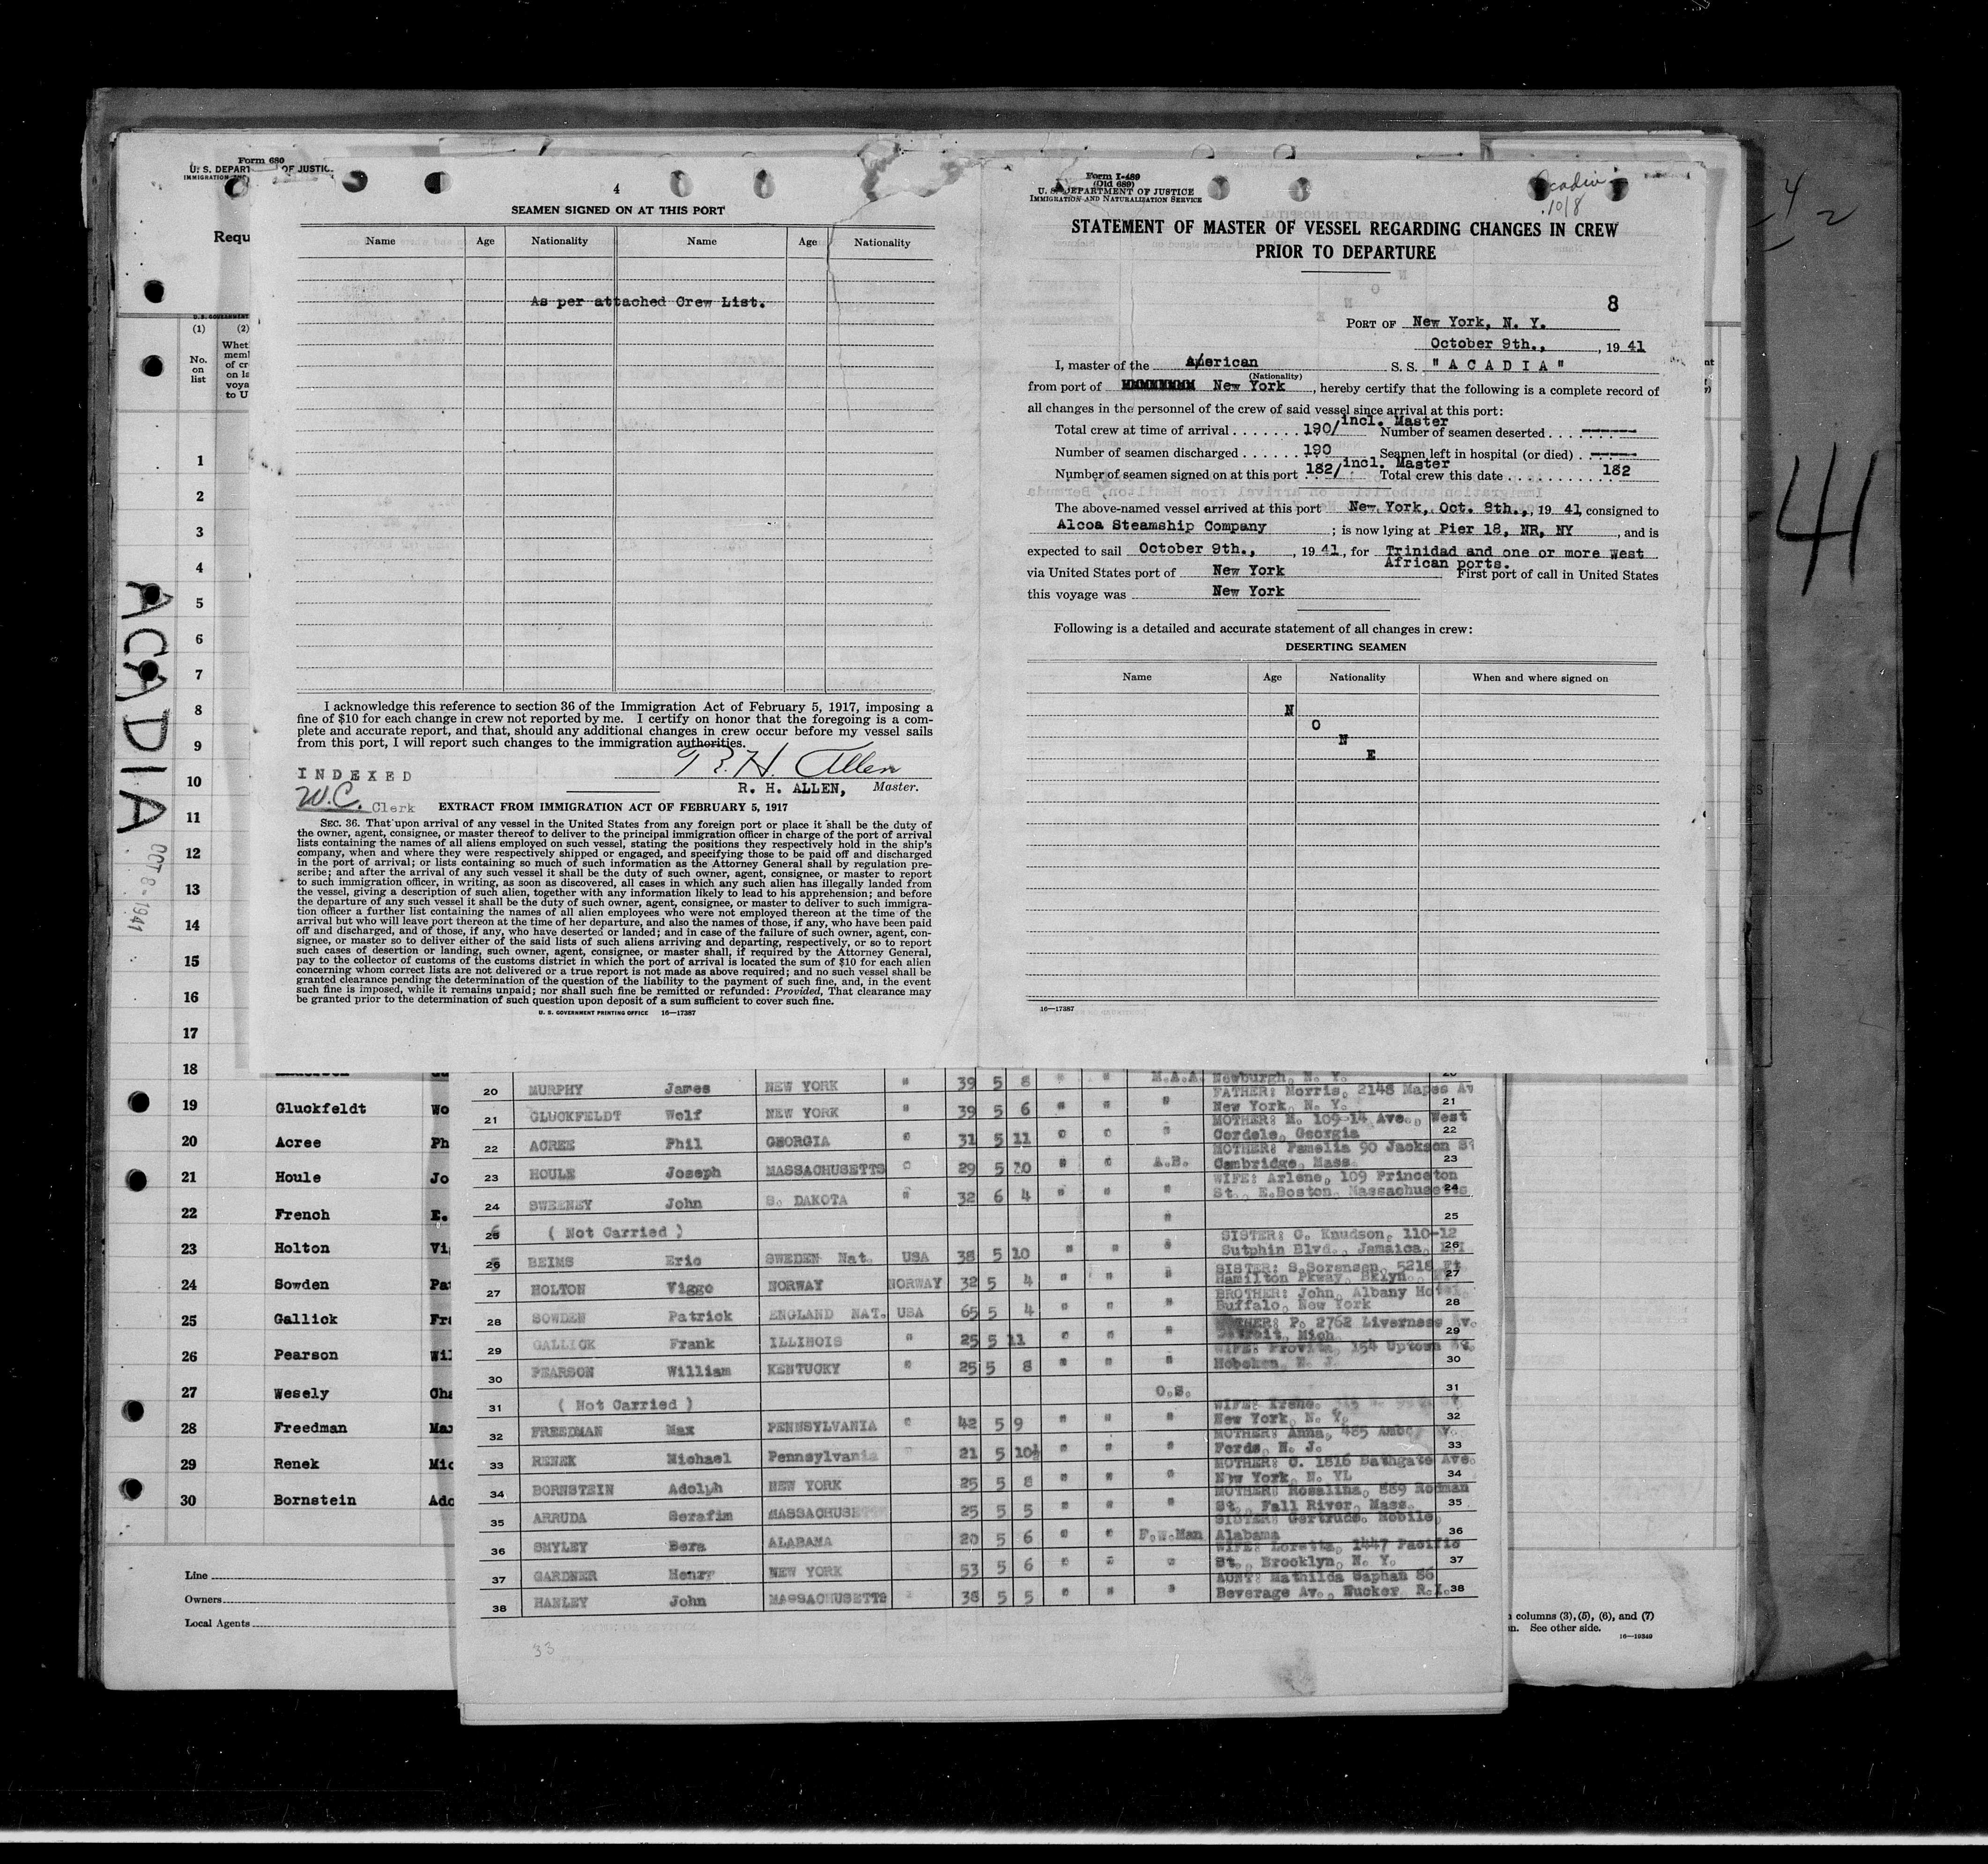 Form 680
U. S. DEPART OF JUSTIC
Requ
(1)
(2)
No.
on
list
Whet
meml
of cr
on la
voya
to U
1
2
3
4
5
6
7
8
9
10
11
12
13
14
15
16
17
18
19 Gluckfeldt Wo
20 Acree Ph
21 Houle Jo
22 French E.
23 Holton Vi
24 Sowden Pa
25 Gallick Fr
26 Pearson Wil
27 Wesely Cha
28 Freedman Max
29 Renek Mic
30 Bornstein Ado
Line
Owners
Local Agents
ACADIA
OCT 8 - 1941
4
SEAMEN SIGNED ON AT THIS PORT
Name Age Nationality Name Age Nationality
As per attached Crew List.
I acknowledge this reference to section 36 of the Immigration Act of February 5, 1917, imposing a
fine of $10 for each change in crew not reported by me. I certify on honor that the foregoing is a com-
plete and accurate report, and that, should any additional changes in crew occur before my vessel sails
from this port, I will report such changes to the immigration authorities.
R. H. Allen
INDEXED
R. H. ALLEN, Master.
W.C. Clerk
EXTRACT FROM IMMIGRATION ACT OF FEBRUARY 5, 1917
SEC. 36. That upon arrival of any vessel in the United States from any foreign port or place it shall be the duty of
the owner, agent, consignee, or master thereof to deliver to the principal immigration officer in charge of the port of arrival
lists containing the names of all aliens employed on such vessel, stating the positions they respectively hold in the ship's
company, when and where they were respectively shipped or engaged, and specifying those to be paid off and discharged
in the port of arrival; or lists containing so much of such information as the Attorney General shall by regulation pre-
scribe; and after the arrival of any such vessel it shall be the duty of such owner, agent, consignee, or master to report
to such immigration officer, in writing, as soon as discovered, all cases in which any such alien has illegally landed from
the vessel, giving a description of such alien, together with any information likely to lead to his apprehension; and before
the departure of any such vessel it shall be the duty of such owner, agent, consignee, or master to deliver to such immigra-
tion officer a further list containing the names of all alien employees who were not employed thereon at the time of the
arrival but who will leave port thereon at the time of her departure, and also the names of those, if any, who have been paid
off and discharged, and of those, if any, who have deserted or landed; and in case of the failure of such owner, agent, con-
signee, or master so to deliver either of the said lists of such aliens arriving and departing, respectively, or so to report
such cases of desertion or landing, such owner, agent, consignee, or master shall, if required by the Attorney General,
pay to the collector of customs of the customs district in which the port of arrival is located the sum of $10 for each alien
concerning whom correct lists are not delivered or a true report is not made as above required; and no such vessel shall be
granted clearance pending the determination of the question of the liability to the payment of such fine, and, in the event
such fine is imposed, while it remains unpaid; nor shall such fine be remitted or refunded: Provided, That clearance may
be granted prior to the determination of such question upon deposit of a sum sufficient to cover such fine.
U. S. GOVERNMENT PRINTING OFFICE 16—17387
Form I-489
(Old 689)
U. S. DEPARTMENT OF JUSTICE
IMMIGRATION AND NATURALIZATION SERVICE
Acadia
10/8
STATEMENT OF MASTER OF VESSEL REGARDING CHANGES IN CREW
PRIOR TO DEPARTURE
8
PORT OF New York, N. Y.
October 9th., , 19 41
I, master of the American S. S. "ACADIA"
(Nationality)
from port of New York , hereby certify that the following is a complete record of
all changes in the personnel of the crew of said vessel since arrival at this port:
Total crew at time of arrival 190/incl. Master Number of seamen deserted -----
Number of seamen discharged 190 Seamen left in hospital (or died) -----
Number of seamen signed on at this port 182/incl. Master Total crew this date 182
The above-named vessel arrived at this port New York, Oct. 8th., , 19 41, consigned to
Alcoa Steamship Company ; is now lying at Pier 18, NR, NY , and is
expected to sail October 9th., , 19 41, for Trinidad and one or more West
African ports.
via United States port of New York First port of call in United States
this voyage was New York
Following is a detailed and accurate statement of all changes in crew:
DESERTING SEAMEN
Name Age Nationality When and where signed on
N
O
N
E
16—17387
4
2
41
20 MURPHY James NEW YORK " 39 5 8 " " M.A.A. Newburgh, N. Y.
FATHER: Morris, 2148 Mapes Av
21 GLUCKFELDT Wolf NEW YORK 39 5 6 " " " New York, N. Y. 21
MOTHER: M. 109-14 Ave., West
22 ACREE Phil GEORGIA " 31 5 11 " " " Cordele, Georgia 22
MOTHER: Pamelia 90 Jackson St
23 HOULE Joseph MASSACHUSETTS " 29 5 10 " " A.B. Cambridge, Mass 23
WIFE: Arlene, 109 Princeton
24 SWEENEY John S. DAKOTA " 32 6 4 " " " St., E.Boston, Massachusetts 24
25 ( Not Carried ) " 25
SISTER: C. Knudson, 110-12
26 BEIMS Eric SWEDEN Nat. USA 38 5 10 " " " Sutphin Blvd., Jamaica, L.I 26
SISTER: S.Sorensen, 5218 Ft.
27 HOLTON Viggo NORWAY NORWAY 32 5 4 " " " Hamilton Pkway, Bklyn. 27
BROTHER: John, Albany Hotel,
28 SOWDEN Patrick ENGLAND NAT. USA 65 5 4 " " " Buffalo, New York 28
P. 2762 Liverness Av.
29 GALLICK Frank ILLINOIS " 25 5 11 " " " Detroit, Mich. 29
WIFE: Provita, 154 Uptown
30 PEARSON William KENTUCKY " 25 5 8 " " " Hoboken, N. J. 30
31 ( Not Carried ) O.S. 31
WIFE: Irene.
32 FREEDMAN Max PENNSYLVANIA " 42 5 9 " " " New York, N. Y. 32
MOTHER: Anna, 485 Amboy
33 RENEK Michael Pennsylvania " 21 5 10½ " " " Fords, N. J. 33
MOTHER: C. 1816 Bathgate Ave.
34 BORNSTEIN Adolph NEW YORK 25 5 8 " " " New York, N. YL 34
MOTHER: Rosalina, 889 Rodman
35 ARRUDA Serafim MASSACHUSETTS 25 5 5 " " " St., Fall River, Mass. 35
SISTER: Gertrude. Mobile,
36 SMYLEY Bera ALABAMA 20 5 6 " " F.W.Man Alabama 36
WIFE: Loretta, 1447 Pacific
37 GARDNER Henry NEW YORK 53 5 6 " " " St., Brooklyn, N. Y. 37
AUNT: Mathilda Gaphan 86
38 HANLEY John MASSACHUSETTS " 38 5 5 " " " Beverage Av., Nucker, R.I. 38
33
columns (3), (5), (6), and (7)
n. See other side.
16—19340